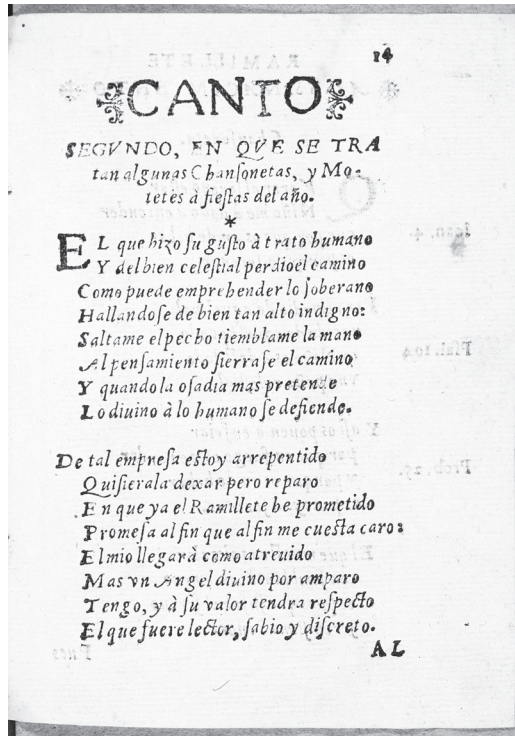 14
CANTO
SEGVNDO, EN QVE SE TRA
tan algunas Chansonetas, y Mo-
tetes à fiestas del año.
*
EL que hizo su gusto à trato humano
Y del bien celestial perdioel camino
Como puede emprehender lo soberano
Hallandose de bien tan alto indigno:
Saltame el pecho tiemblame la mano
Al pensamiento sierrase el camino
Y quando la osadia mas pretende
Lo diuino à lo humano se defiende.
De tal empresa estoy arrepentido
Quisierala dexar pero reparo
En que ya el Ramillete he prometido
Promesa al fin que al fin me cuesta caro:
El mio llegarà como atreuido
Mas vn Angel diuino por amparo
Tengo, y à su valor tendra respecto
El que fuere lector, sabio y discreto.
AL